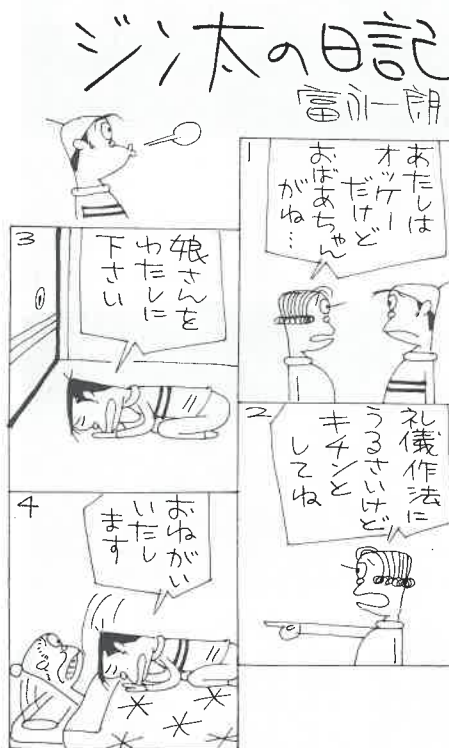 ジン太の日記
富永一朗
1
あたしは
オッケー
だけど
おばあちゃん
がね…
2
礼儀作法に
うるさいけど
キチンと
してね
3
娘さんを
わたしに
下さい
4
おねがい
いたし
ます